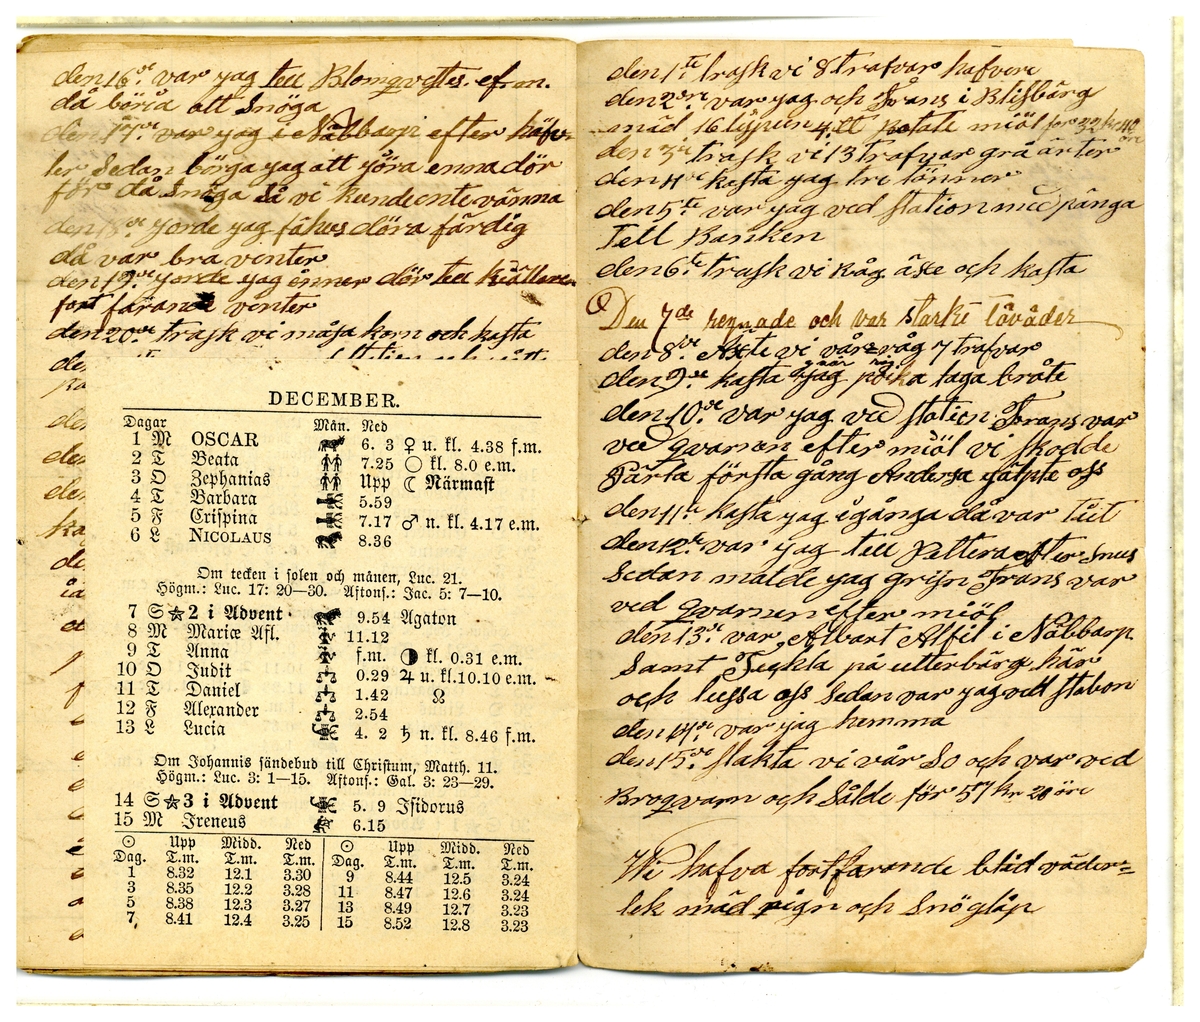 den 16de var jag tell Blomqvstes. ef.m.
då börja att snöga
den 17de var jag i Näbbarp efter
ler Sedan börga jag att yöra enna dör
för då Snöga så vi kunde ente vänna
den 18de yorde jag fähus döra färdig
då var bra venter
den 19de yorde jag änner dör tell
fortfarande venter
den 20de trask vi måsa korn och kasta
DECEMBER.
Dagar Mån. Ned
1 M OSCAR 6. 3 ♀ u. kl. 4.38 f.m.
2 T Beata 7.25 ○ kl. 8.0 e.m.
3 O Zephanias Upp ☾ Närmast
4 T Barbara 5.59
5 F Crispina 7.17 ♂ n. kl. 4.17 e.m.
6 L NICOLAUS 8.36
Om tecken i solen och månen, Luc. 21.
Högm.: Luc. 17: 20—30. Aftons.: Jac. 5: 7—10.
7 S ☆ 2 i Advent 9.54 Agaton
8 M Mariæ Afl. 11.12
9 T Anna f.m. ◑ kl. 0.31 e.m.
10 O Judit 0.29 ♃ u. kl. 10.10 e.m.
11 T Daniel 1.42 ☊
12 F Alexander 2.54
13 L Lucia 4. 2 ♄ n. kl. 8.46 f.m.
Om Johannis sändebud till Christum, Matth. 11.
Högm.: Luc. 3: 1—15. Aftons.: Gal. 3: 23—29.
14 S ☆ 3 i Advent 5. 9 Isidorus
15 M Ireneus 6.15
☉ Upp Midd. Ned ☉ Upp Midd. Ned
Dag. T.m. T.m. T.m. Dag. T.m. T.m. T.m.
1 8.32 12.1 3.30 9 8.44 12.5 3.24
3 8.35 12.2 3.28 11 8.47 12.6 3.24
5 8.38 12.3 3.27 13 8.49 12.7 3.23
7 8.41 12.4 3.25 15 8.52 12.8 3.23
den 1ste trask vi 8 trafvar hafvere
den 2dre var jag och Frans i Blisbärg
mäd 16 lispun 4 tt potate miöl for 32 kr 40 öre
den 3die trask vi 13 trafvar grå ärter
den 4de kasta jag tre tönner
den 5te var jag ved station med pänga
Tell Banken
den 6te trask vi Råg äxe och kasta
Den 7de regnade och var starkt töväder
den 8de Äxte vi vår råg 7 trafvar
den 9de kasta jag när poika taga bråte
den 10de var jag ved station. Frans var
ved qvarnen efter miöl vi skodde
Särta första gång Andersa hälpte oss
den 11te kasta jag igånga då var tält
den 12te var jag tell Pettera efter snus
Sedan malde jag grijn Frans var
ved qvarnen efter miöl
den 13de var Alvart Alfil i Näbbarp
Samt Teckla på utterbärg här
och lussa oss Sedan var jag vell station
den 14de var jag hemma
den 15de slakta vi vår So och var ved
Broqvarn och Sålde för 57 kr 20 öre
Wi hafva fortfarande blid väder=
lek mäd rign och Snöglåp